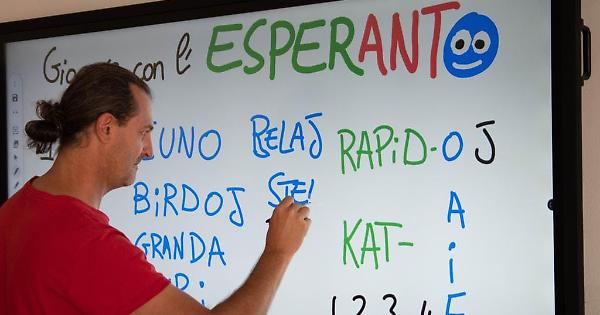 con l' ESPERANTO
BELAJ RAPiD-O J
BiRDOJ STE! A
GRANDA KAT- i
1 2 3 4 E